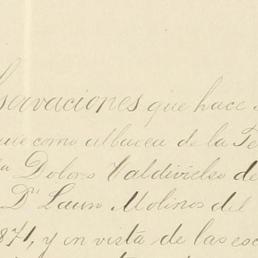 servaciones que hace
que como albacea de la Te
Dª Dolores Valdivielso de
D. Lauro Molinos del
871, y en vista de las esc